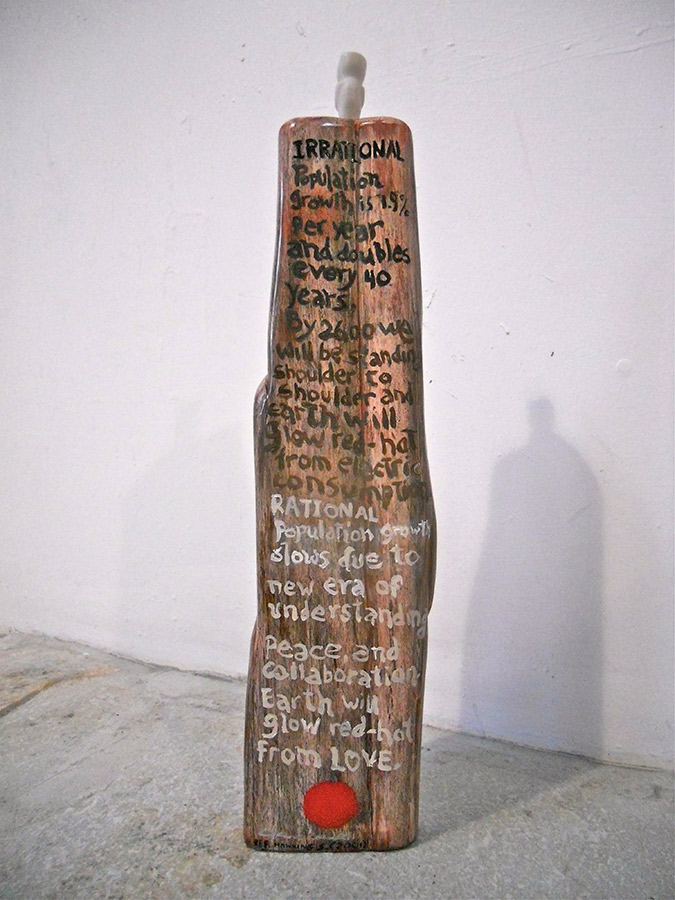 IRRATIONAL
Population
growth is 1.9%
per year
and doubles
every 40
years.
By 2600 we
will be standing
shoulder to
shoulder and
earth will
glow red-hot
from electric
consumption
RATIONAL
Population growth
slows due to
new era of
understanding
peace, and
collaboration.
Earth will
glow red-hot
from LOVE.
REF. HAWKING S. (2001)